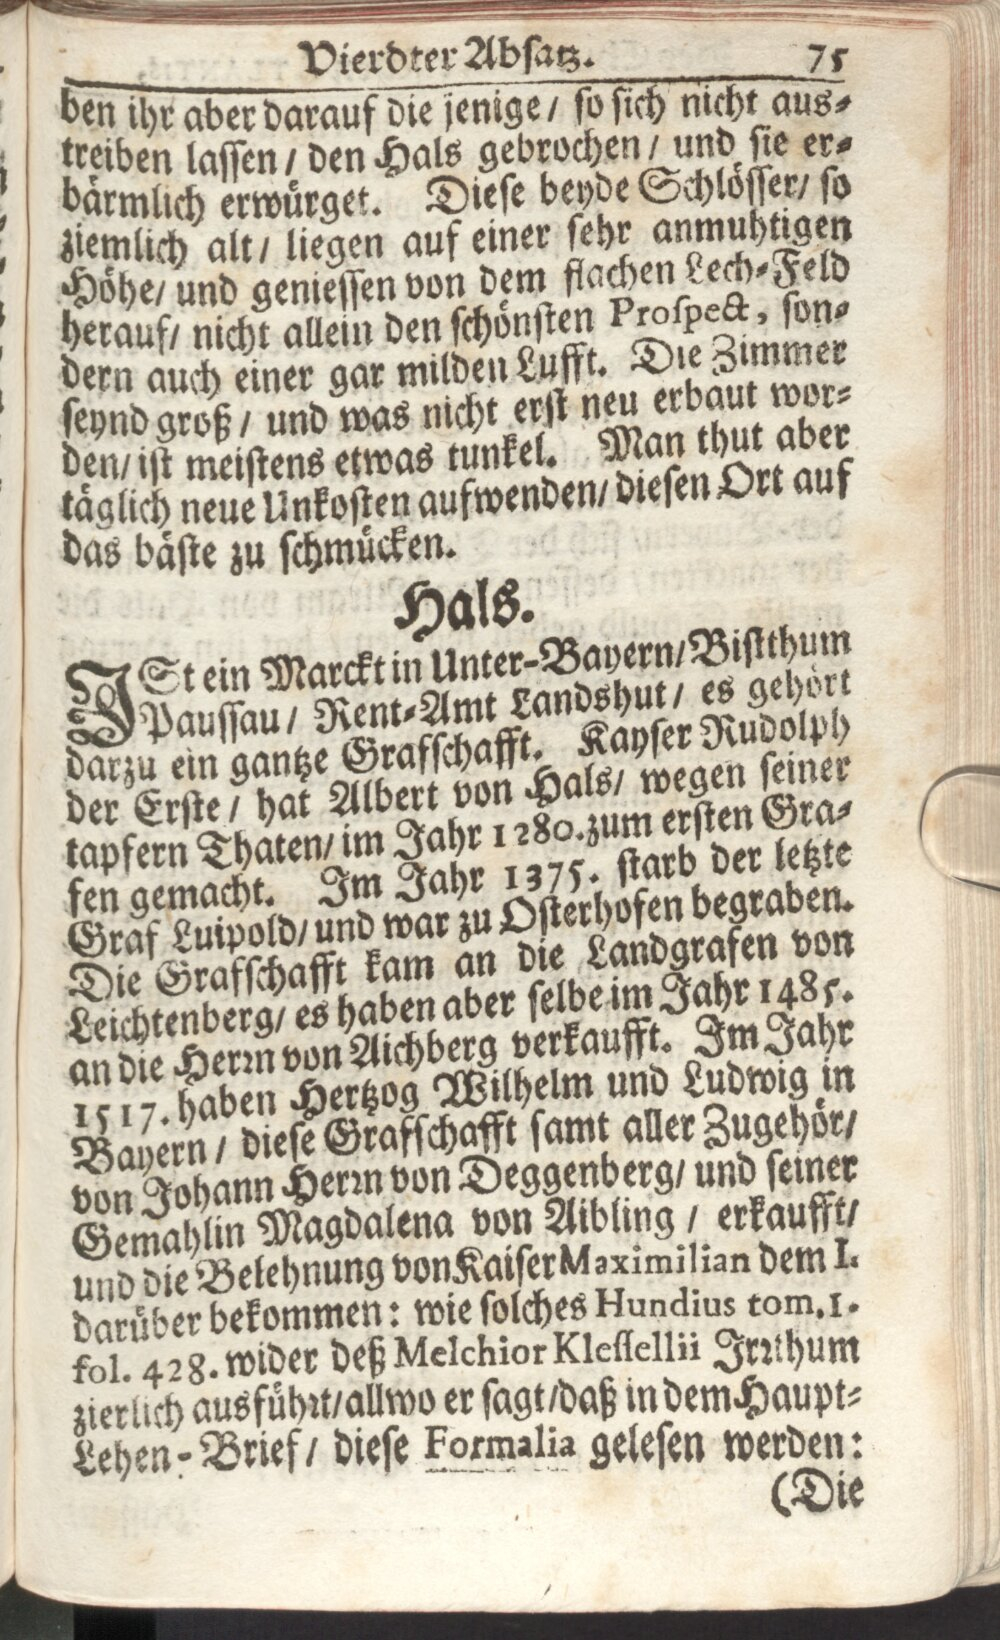 Vierdter Absatz. 75
ben ihr aber darauf die jenige / so sich nicht aus-
treiben lassen / den Hals gebrochen / und sie er-
bärmlich erwürget. Diese beyde Schlösser / so
ziemlich alt / liegen auf einer sehr anmuhtigen
Höhe / und geniessen von dem flachen Lech-Feld
herauf / nicht allein den schönsten Prospect, son-
dern auch einer gar milden Lufft. Die Zimmer
seynd groß / und was nicht erst neu erbaut wor-
den / ist meistens etwas tunkel. Man thut aber
täglich neue Unkosten aufwenden / diesen Ort auf
das bäste zu schmücken.
Hals.
ISt ein Marckt in Unter-Bayern / Bistthum
Paussau / Rent-Amt Landshut / es gehört
darzu ein gantze Grafschafft. Kayser Rudolph
der Erste / hat Albert von Hals / wegen seiner
tapfern Thaten / im Jahr 1280. zum ersten Gra-
fen gemacht. Im Jahr 1375. starb der letzte
Graf Luipold / und war zu Osterhofen begraben.
Die Grafschafft kam an die Landgrafen von
Leichtenberg / es haben aber selbe im Jahr 1485.
an die Herrn von Aichberg verkaufft. Im Jahr
1517. haben Hertzog Wilhelm und Ludwig in
Bayern / diese Grafschafft samt aller Zugehör /
von Johann Herrn von Deggenberg / und seiner
Gemahlin Magdalena von Aibling / erkaufft /
und die Belehnung von Kaiser Maximilian dem I.
darüber bekommen: wie solches Hundius tom. 1.
fol. 428. wider deß Melchior Klessellii Irrthum
zierlich ausführt / allwo er sagt / daß in dem Haupt-
Lehen-Brief / diese Formalia gelesen werden:
(Die